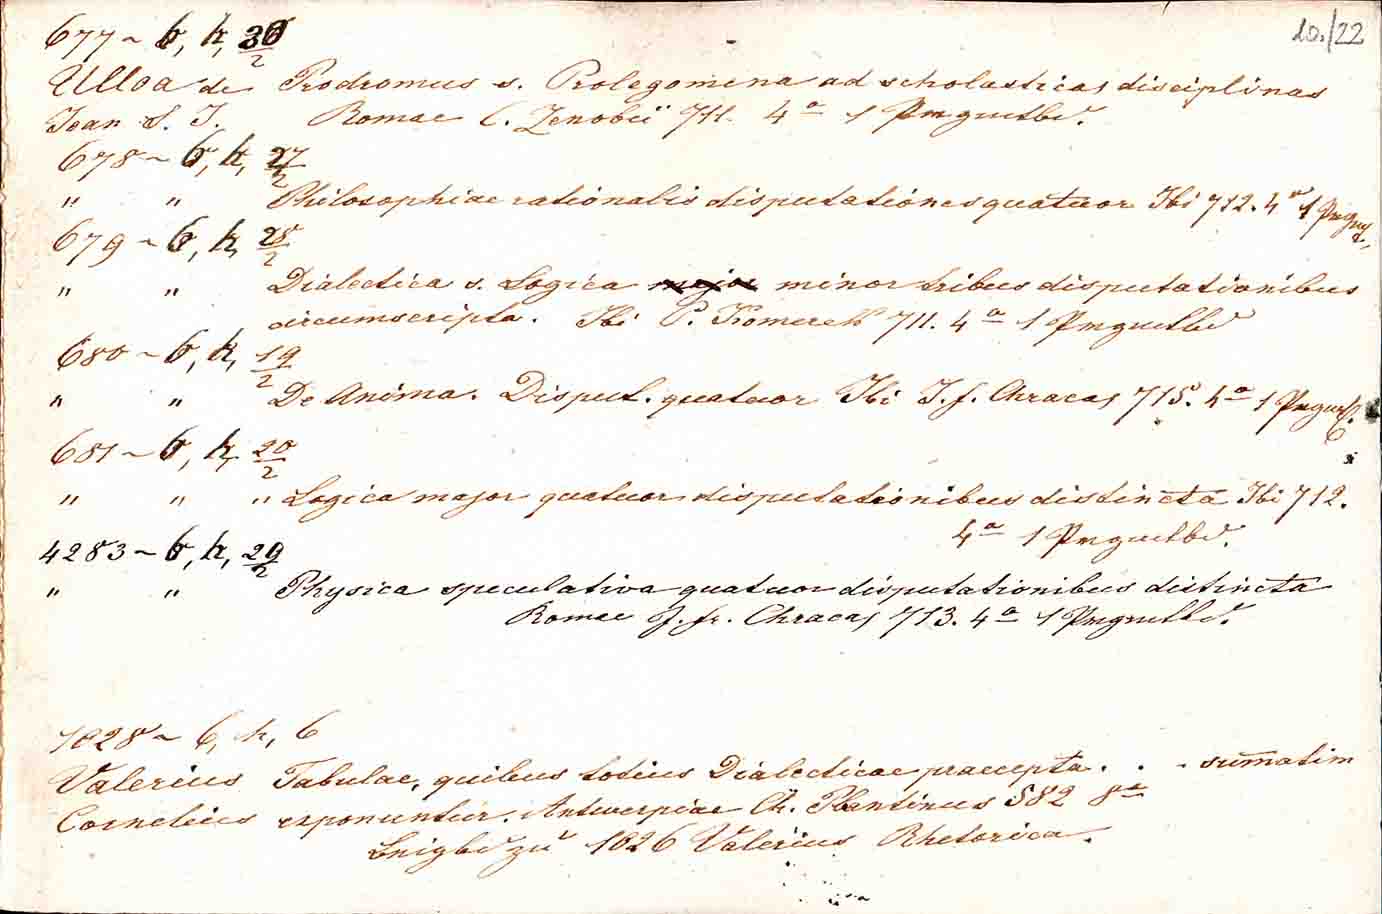 10./22
677 ~ 6, k, 30/2
Ulloa de Prodromus s. Prolegomena ad scholasticas disciplinas
Joan S. J. Romae C. Zenobii 711. 4a 1 Prngutbd.
678 ~ 6, k, 27/2
" " Philosophiae rationalis disputationes quatuor Ibi 712. 4a 1
679 ~ 6, k, 28/2
" " Dialectica s. Logica major minor tribus disputationibus
circumscripta. Ibi P. Komarek 711. 4a 1
680 ~ 6, k, 19/2
" " De Anima. Disput. quatuor Ibi J. f. Chracas 715. 4a 1
681 ~ 6, k, 20/2
" " " Logica major quatuor disputationibus distincta Ibi 712.
4a 1
4283 ~ 6, k, 29/2
" " Physica speculativa quatuor disputationibus distincta
Romae J. fr. Chracas 713. 4a 1
1028 ~ 6, h, 6
Valerius Tabulae, quibus totius Dialecticae praecepta . . - sum̄atim
Cornelius exponuntur. Antwerpiae Ch. Plantinus 582 8a
zu 1026 Valerius Rhetorica.